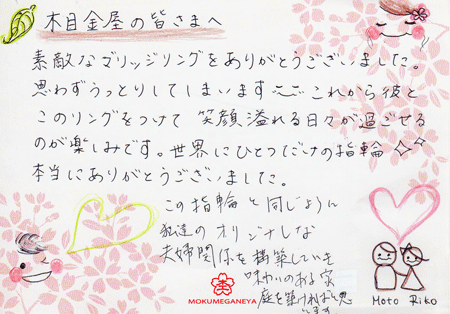 木目金屋の皆さまへ
素敵なマリッジリングをありがとうございました。
思わずうっとりしてしまいます これから彼と
このリングをつけて 笑顔溢れる日々が過ごせる
のが楽しみです。世界にひとつだけの指輪
本当にありがとうございました。
この指輪と同じように
私達のオリジナルな
夫婦関係を構築していき
味わいのある家
庭を築ければと思
います
MOKUMEGANEYA
Moto Riko